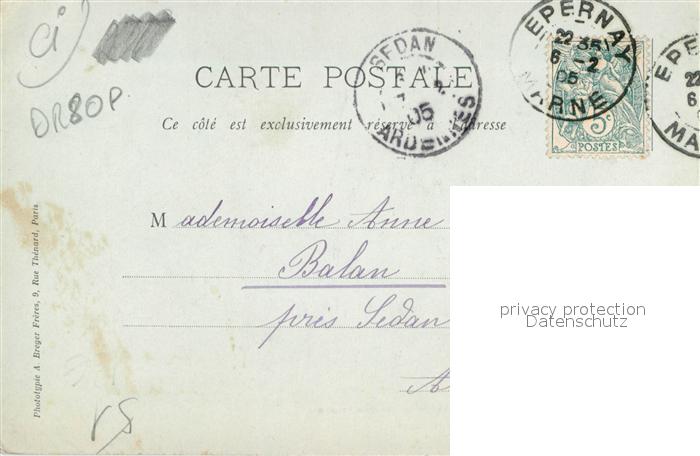 Ci
DR80P.
CARTE POSTALE
Ce côté est exclusivement réservé à l'adresse
SEDAN
05
ARDENNES
EPERNAY
22 35
6 -2
05
MARNE
5c
POSTES
EPE
22
6
MA
Mademoiselle Anne
Balan
près Sedan
A
privacy protection
Datenschutz
Phototypie A. Breger Frères, 9, Rue Thénard, Paris